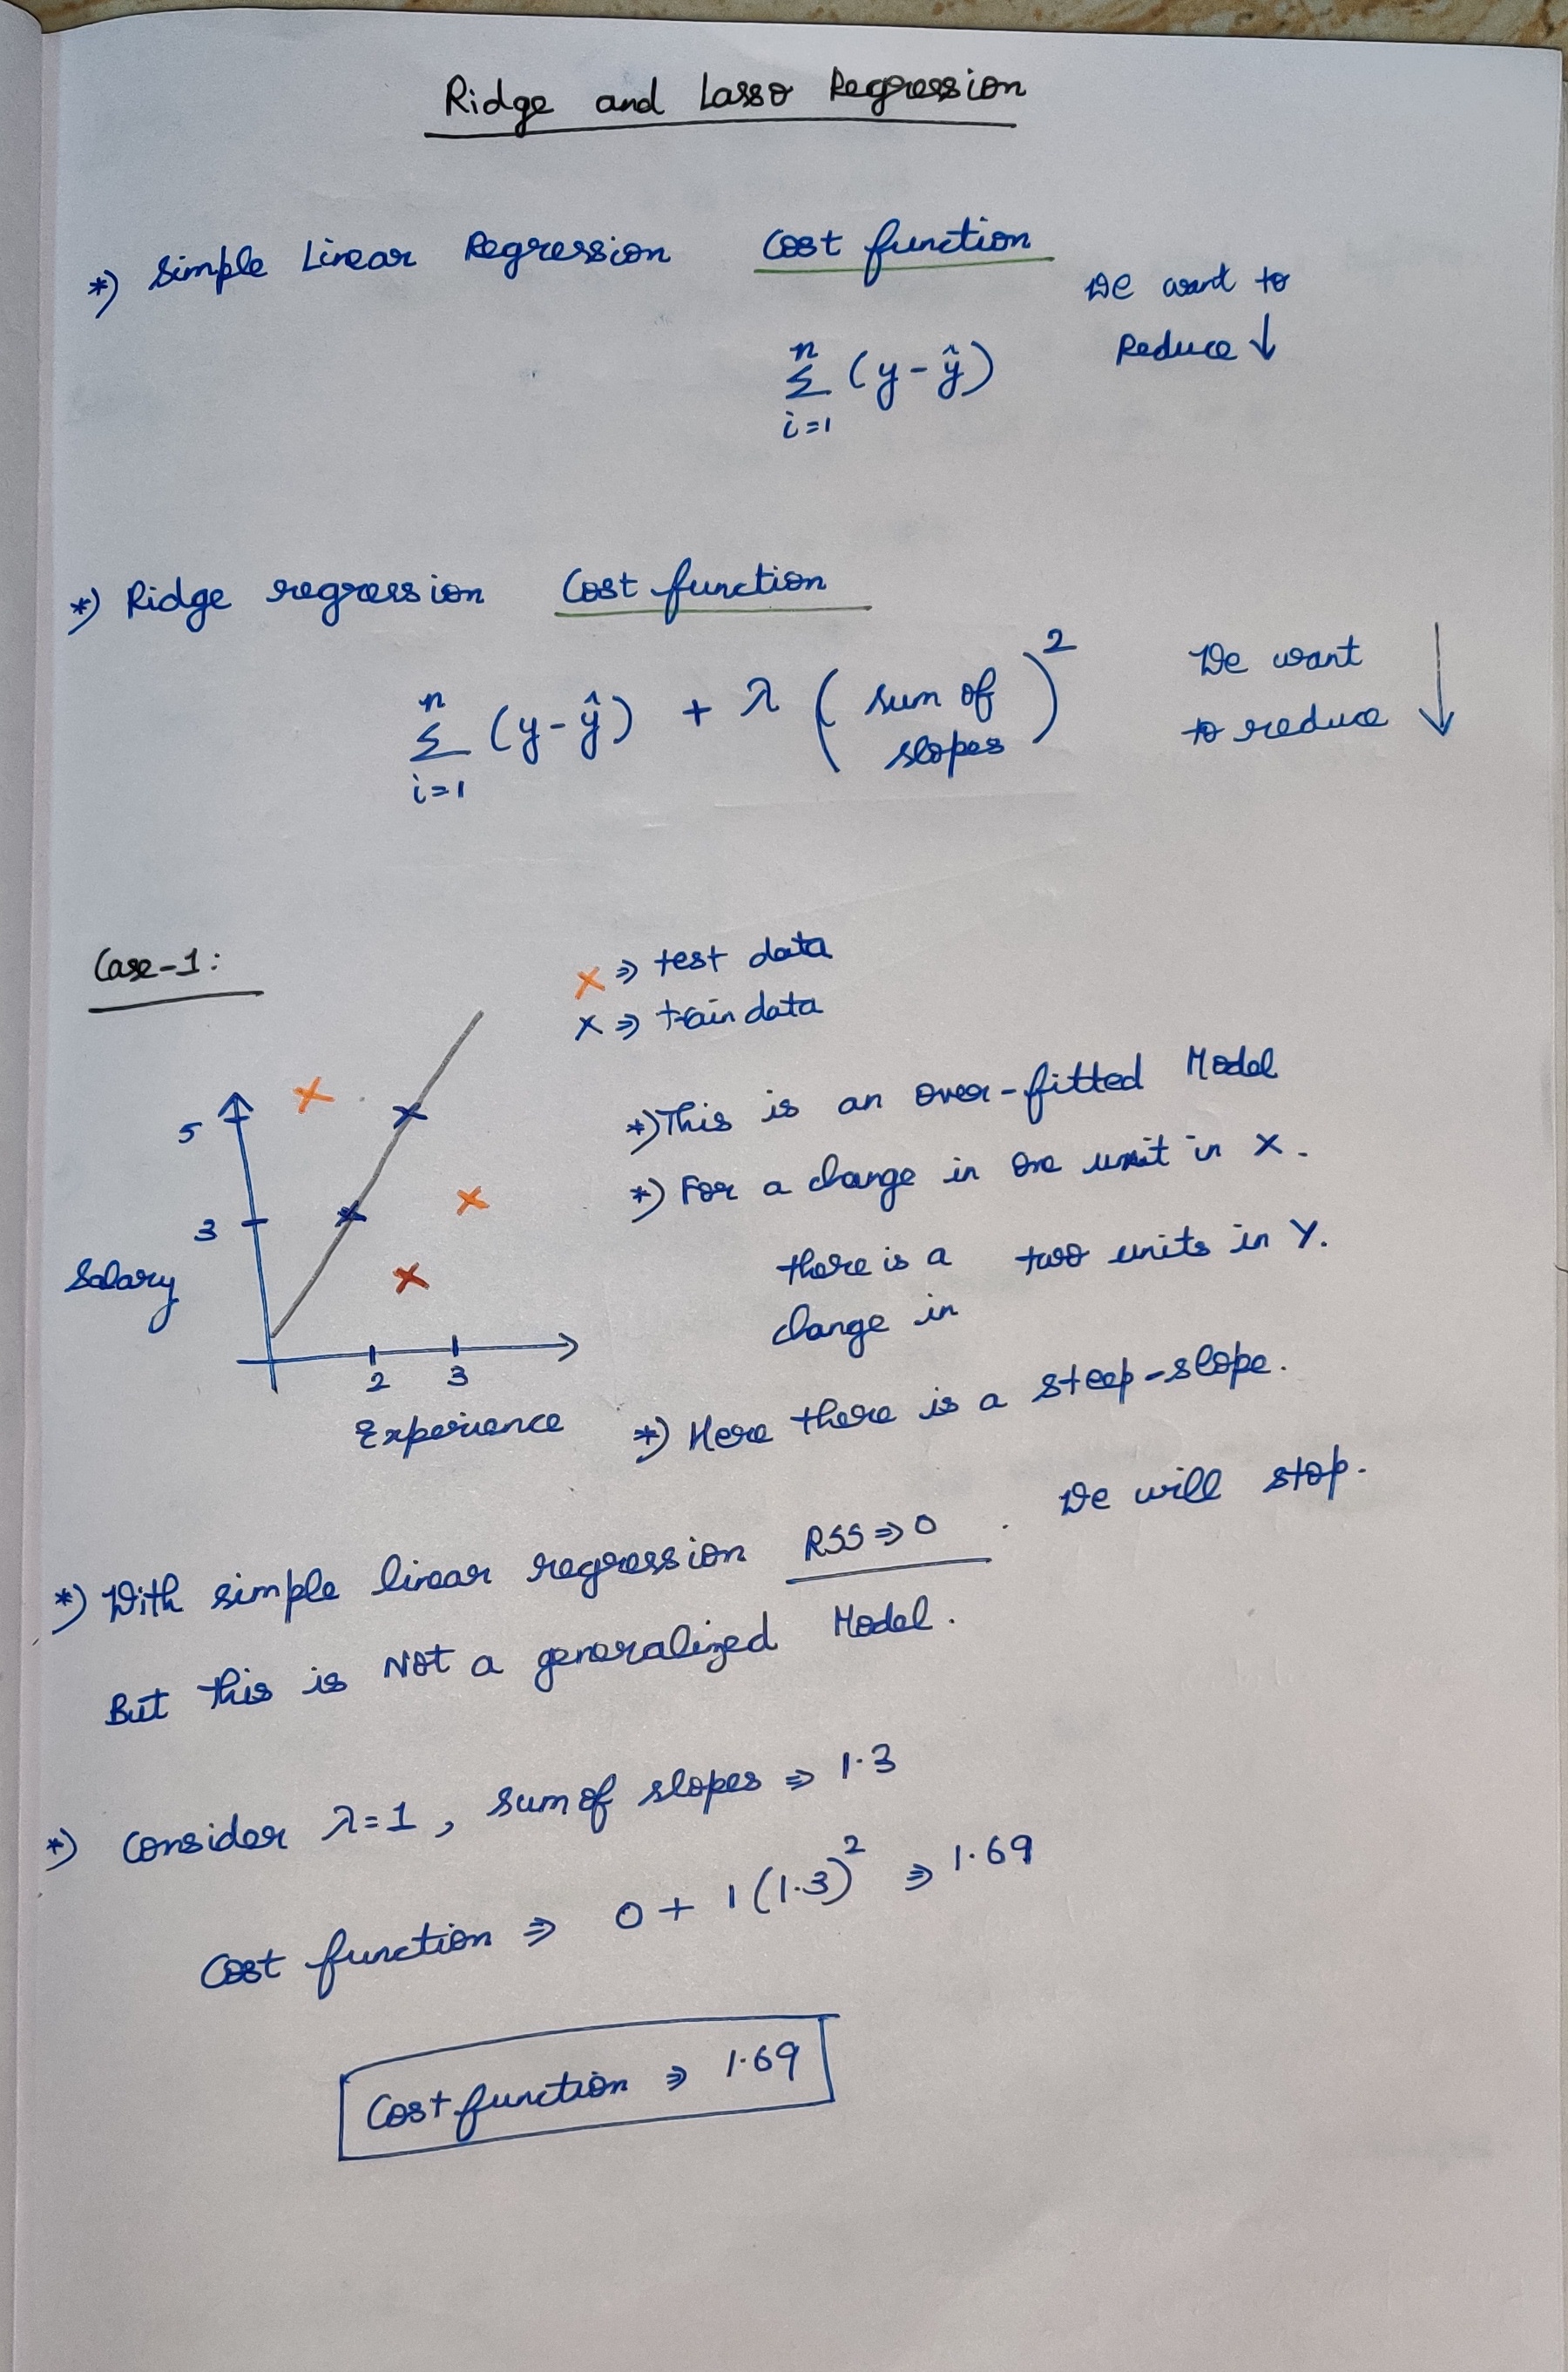 Ridge and Lasso Regression
*) Simple Linear Regression Cost function
We want to
Reduce ↓
n
Σ (y-ŷ)
i=1
*) Ridge regression Cost function
n
Σ (y-ŷ) + λ (sum of slopes)²
i=1
We want
to reduce ↓
Case-1:
x ⇒ test data
x ⇒ train data
5
3
Salary
2 3
Experience
*) This is an over-fitted Model
*) For a change in one unit in X.
there is a two units in Y.
change in
*) Here there is a steep-slope.
*) With simple linear regression RSS ⇒ 0. We will stop.
But this is Not a generalized Model.
*) Consider λ=1, sum of slopes ⇒ 1.3
Cost function ⇒ 0 + 1(1.3)² ⇒ 1.69
Cost function ⇒ 1.69